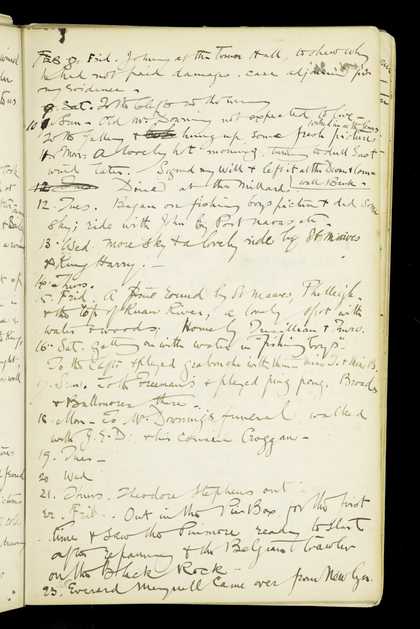 8. Frid. Johnny at the Town Hall, to shew why
he had not paid damages. case adjourned for
my evidence -
9. Sat. To the Clefts in the evening
10. Sun - Old Mr Downing not expected to live -
To the Gallery & hung up some fresh pictures
Mon. A lovely hot morning, to dull East
wind later. Signed my Will & left it at the Devon & Corn -
wall Bank -
12 Dined at the Millards
12. Tues. Began on fishing boys picture & did some
sky; ride with John by Port navas etc -
13. Wed. more sky & a lovely ride by St mawes
& King Harry. -
14. Thurs.
15. Frid. A round by St Mawes, Philleigh
& the top of Ruan River, a lovely spot with
water & woods. Home by Tresillian & Truro.
16. Sat. getting on with water in "fishing boys".
To the Clefts & played with them
Sun. To the Freemans & played ping pong.
& there -
18. Mon - To Mr Downing's funeral walked
with & his cousin Croggan -
19. Tues -
20 Wed
21. Thurs. Theodore Stephens out
22. Frid. Out in the Pill Box for the first
time & saw the ready to start
after repairing & the Belgian trawler
on the Black Rock -
23. Everard came over from